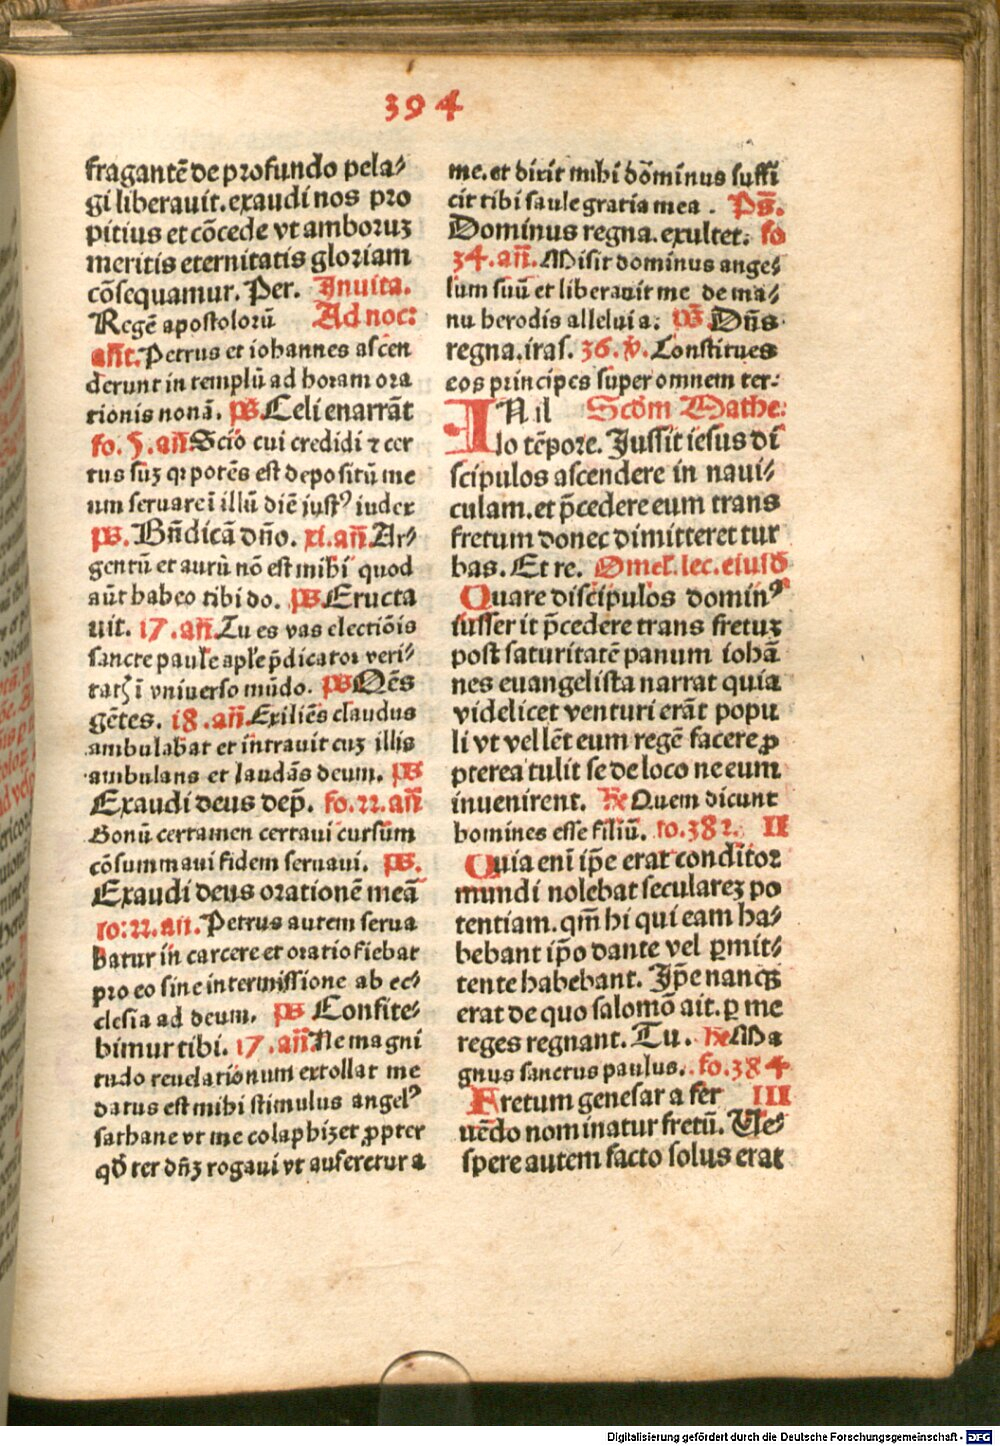 394
fragantē de profundo pela⸗
gi liberauit. exaudi nos pro
pitius et cōcede vt amboruꝫ
meritis eternitatis gloriam
cōsequamur. Per. Inuita.
Regē apostolorū Ad noc:
añt. Petrus et iohannes ascen
derunt in templū ad horam ora
tionis nonā. ps̄ Celi enarrāt
fo. 5. añ Scio cui credidi ⁊ cer
tus suꝫ qꝛ potēs est depositū me
um seruare ī illū diē iustꝰ iudex
ps̄. Bn̄dicā dn̄o. xi. añ. Ar⸗
gentū et aurū nō est mihi quod
aūt habeo tibi do. ps̄ Eructa
uit. 17. añ. Tu es vas electiōis
sancte paule aple p̄dicator veri⸗
tatꝭ ī vniuerso mūdo. ps̄ Oēs
gētes. 18. añ. Exiliēs claudus
ambulabat et intrauit cuꝫ illis
ambulans et laudās deum. ps̄
Exaudi deus dep̄. fo. 22. añ
Bonū certamen certaui cursum
cōsummaui fidem seruaui. ps̄.
Exaudi deus orationē meā
fo: 22. añ. Petrus autem serua
batur in carcere et oratio fiebat
pro eo sine intermissione ab ec⸗
clesia ad deum. ps̄ Confite⸗
bimur tibi. 17. añ Ne magni
tudo reuelationum extollat me
datus est mihi stimulus angelꝰ
sathane vt me colaphizet ꝓpter
qđ ter dn̄ꝫ rogaui vt auferetur a
me. et dixit mihi dōminus suffi
cit tibi saule gratia mea. Ps̄.
Dominus regna. exultet. fo
34. añ. Misit dominus ange⸗
lum suū et liberauit me de ma⸗
nu herodis alleluia. ps̄ Dn̄s
regna. iras. 36. ꝟ. Constitues
eos principes super omnem ter:
IN il Scdm Mathe:
lo tēpore. Jussit iesus di
scipulos ascendere in naui⸗
culam. et p̄cedere eum trans
fretum donec dimitteret tur
bas. Et re. Omel. lec. eiusd
Quare discipulos dominꝰ
iusserit p̄cedere trans fretuꝫ
post saturitatē panum iohā
nes euangelista narrat quia
videlicet venturi erāt popu
li vt vellēt eum regē facere ꝓ
pterea tulit se de loco ne eum
inuenirent. ℟ Quem dicunt
homines esse filiū. fo. 382. II
Quia enī ip̄e erat conditor
mundi nolebat seculareꝫ po
tentiam. qm̄ hi qui eam ha⸗
bebant ip̄o dante vel ꝑmit⸗
tente habebant. Ip̄e nanqꝫ
erat de quo salomō ait. ꝑ me
reges regnant. Tu. ℟ Ma
gnus sanctus paulus. fo. 384
Fretum genesar a fer III
uēdo nominatur fretū. Ve⸗
spere autem facto solus erat
Digitalisierung gefördert durch die Deutsche Forschungsgemeinschaft - DFG